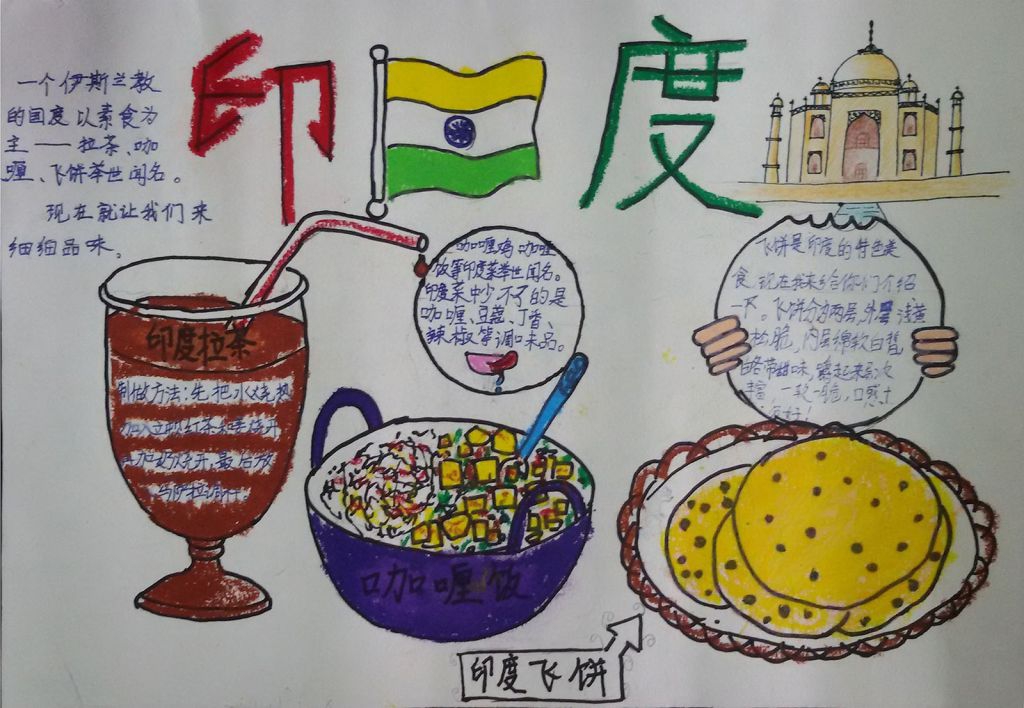 印度
一个伊斯兰教
的国度以素食为
主——拉茶、咖
喱、飞饼举世闻名。
现在就让我们来
细细品味。
咖喱鸡咖喱
饭等印度菜举世闻名。
印度菜中少不了的是
咖喱、豆蔻、丁香、
辣椒等调味品。
飞饼是印度的特色美
食,现在我来给你们介绍
一下。飞饼分为两层,外层浅黄
松脆,内层绵软白皙
略带甜味,嚼起来层次
丰富,一软一脆,口感
印度拉茶
制做方法:先把水烧热
加入立顿红茶和姜烧开
加奶烧开,最后放
马萨拉调汁。
咖喱饭
印度飞饼